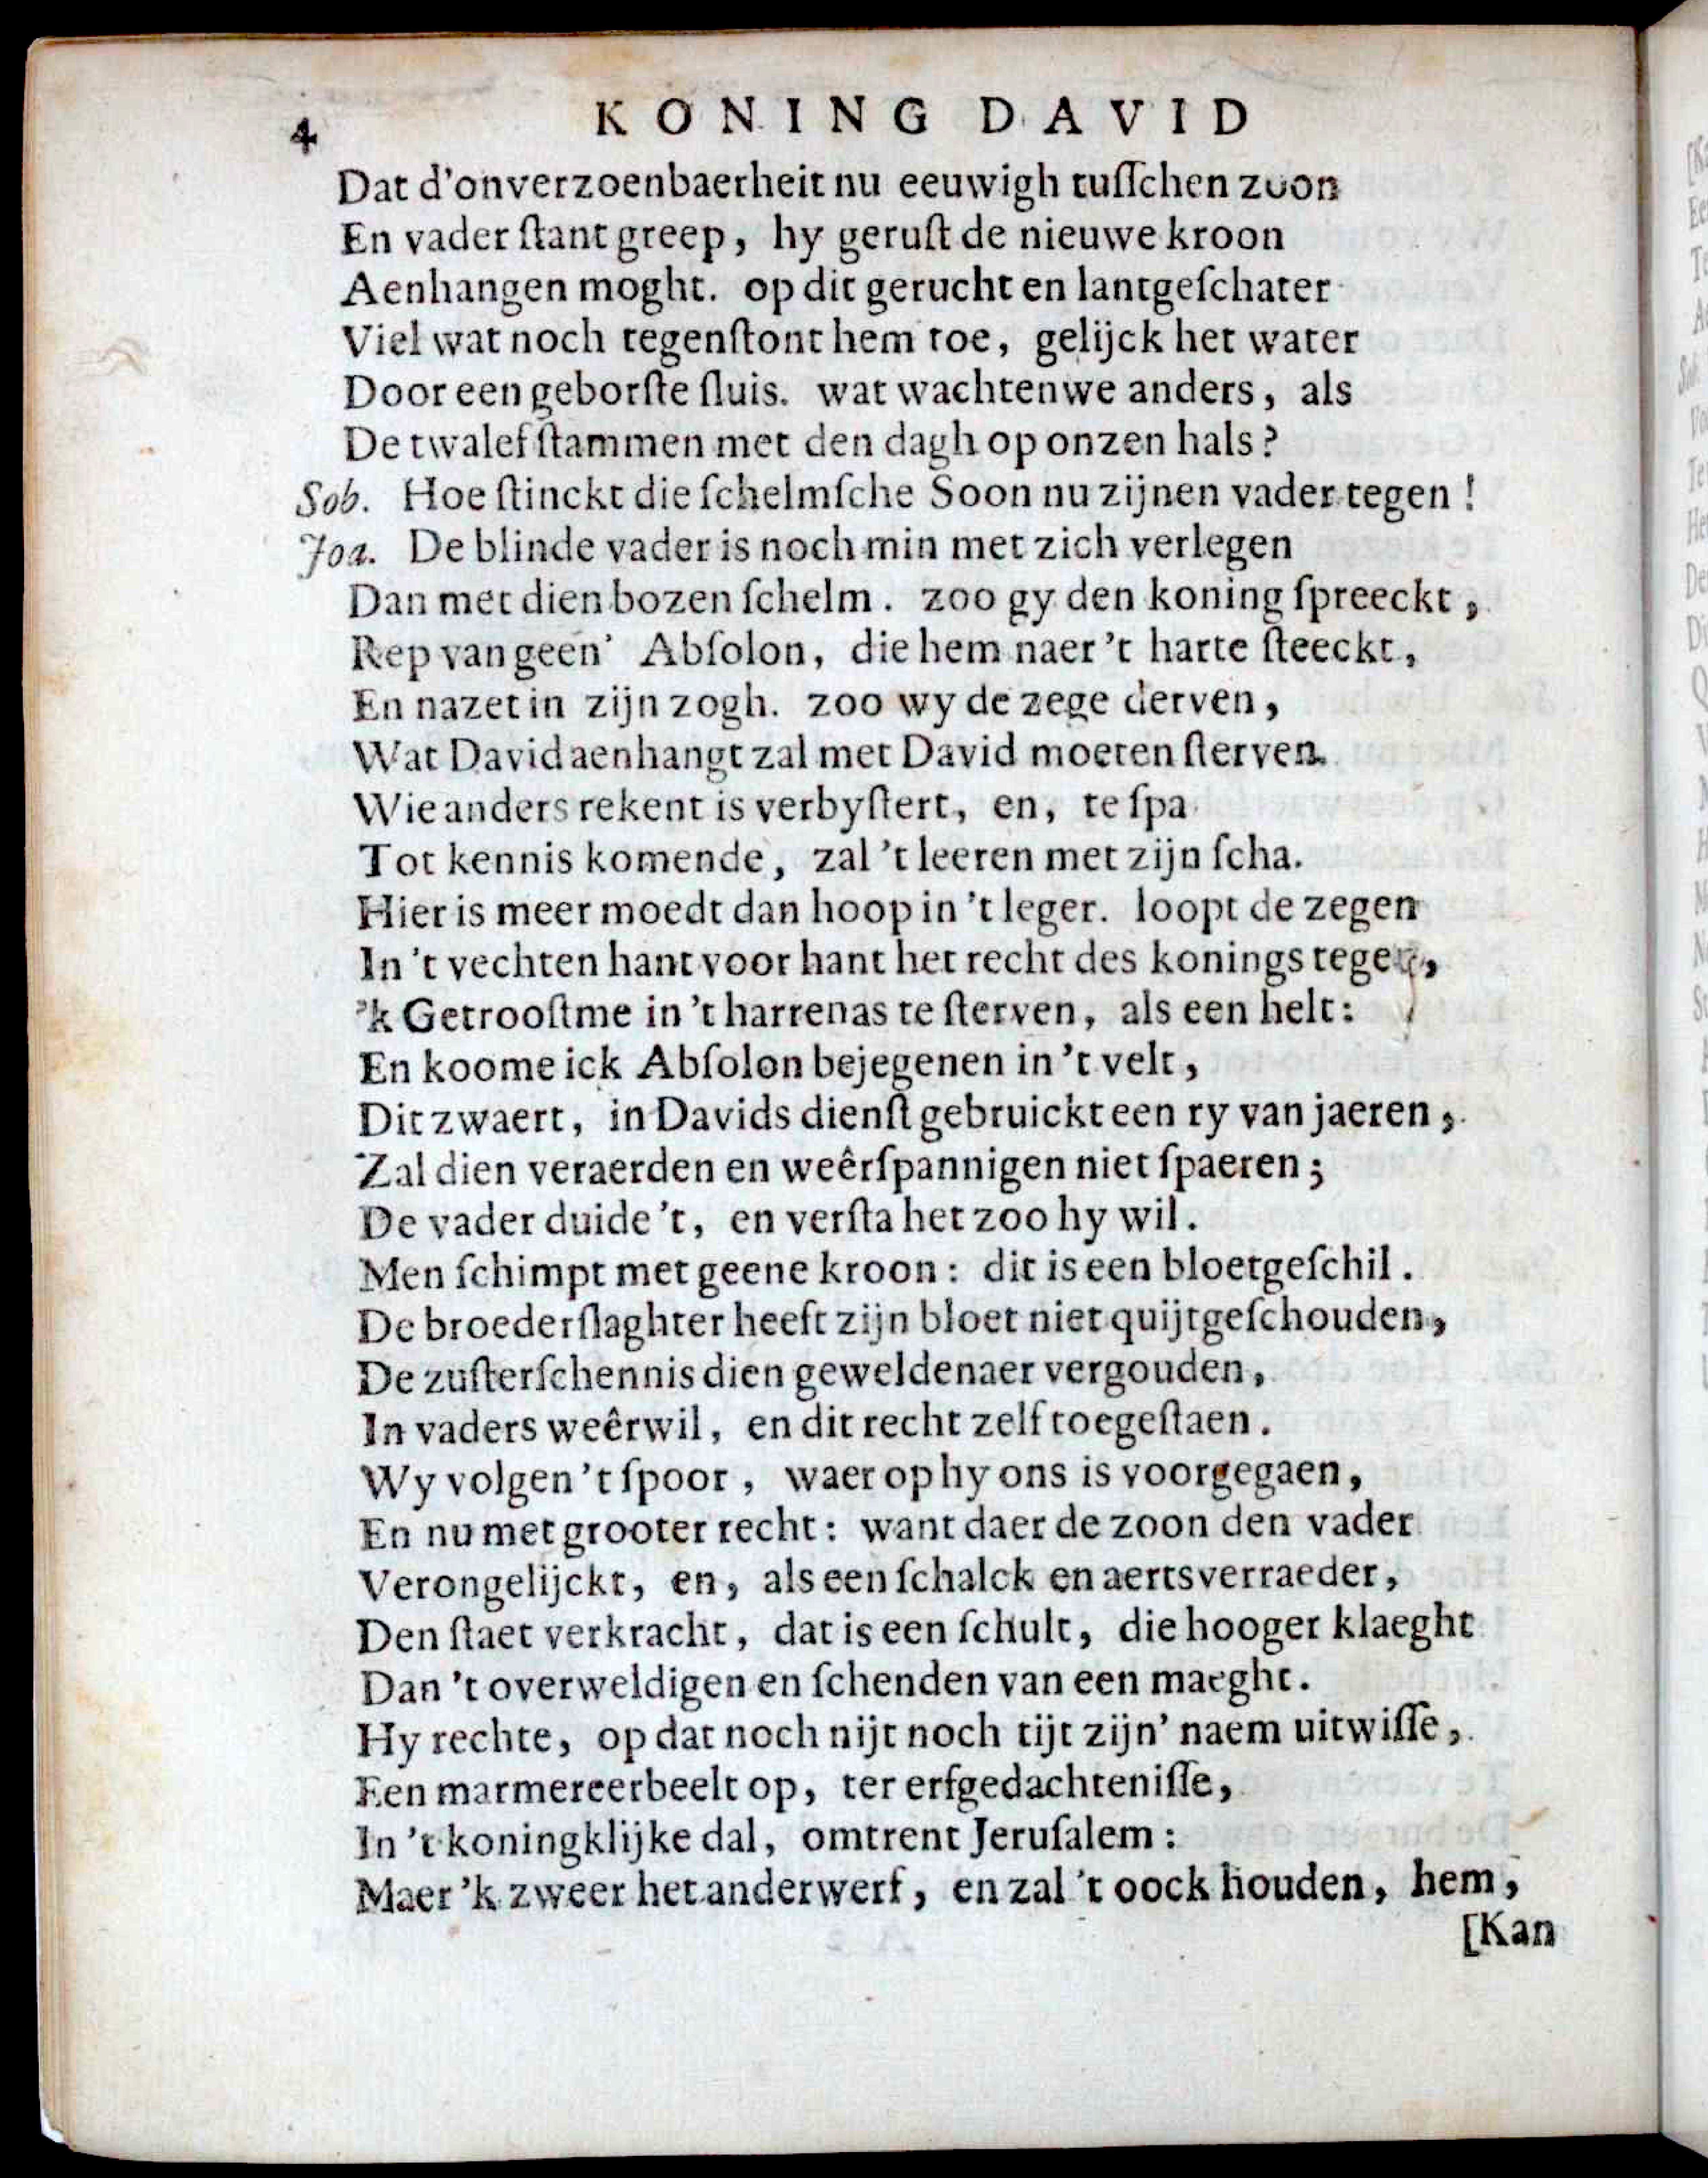 4 KONING DAVID
Dat d'onverzoenbaerheit nu eeuwigh tuſſchen zoon
En vader ſtant greep, hy geruſt de nieuwe kroon
Aenhangen moght. op dit gerucht en lantgeſchater
Viel wat noch tegenſtont hem toe, gelijck het water
Door een geborſte ſluis. wat wachten we anders, als
De twalef ſtammen met den dagh op onzen hals?
Sob. Hoe ſtinckt die ſchelmſche Soon nu zijnen vader tegen!
Joa. De blinde vader is noch min met zich verlegen
Dan met dien bozen ſchelm. zoo gy den koning ſpreeckt,
Rep van geen' Abſolon, die hem naer 't harte ſteeckt,
En nazet in zijn zogh. zoo wy de zege derven,
Wat David aenhangt zal met David moeten ſterven.
Wie anders rekent is verbyſtert, en, te ſpa
Tot kennis komende, zal 't leeren met zijn ſcha.
Hier is meer moedt dan hoop in 't leger. loopt de zegen
In 't vechten hant voor hant het recht des konings tegen,
'k Getrooſtme in 't harrenas te ſterven, als een helt:
En koome ick Abſolon bejegenen in 't velt,
Dit zwaert, in Davids dienſt gebruickt een ry van jaeren,
Zal dien veraerden en weêrſpannigen niet ſpaeren;
De vader duide 't, en verſta het zoo hy wil.
Men ſchimpt met geene kroon: dit is een bloetgeſchil.
De broederſlaghter heeft zijn bloet niet quijtgeſchouden,
De zuſterſchennis dien geweldenaer vergouden,
In vaders weêrwil, en dit recht zelf toegeſtaen.
Wy volgen 't ſpoor, waer op hy ons is voorgegaen,
En nu met grooter recht: want daer de zoon den vader
Verongelijckt, en, als een ſchalck en aertsverraeder,
Den ſtaet verkracht, dat is een ſchult, die hooger klaeght
Dan 't overweldigen en ſchenden van een maeght.
Hy rechte, op dat noch nijt noch tijt zijn' naem uitwiſſe,
Een marmereerbeelt op, ter erfgedachteniſſe,
In 't koningklijke dal, omtrent Jeruſalem:
Maer 'k zweer het anderwerf, en zal 't oock houden, hem,
[Kan